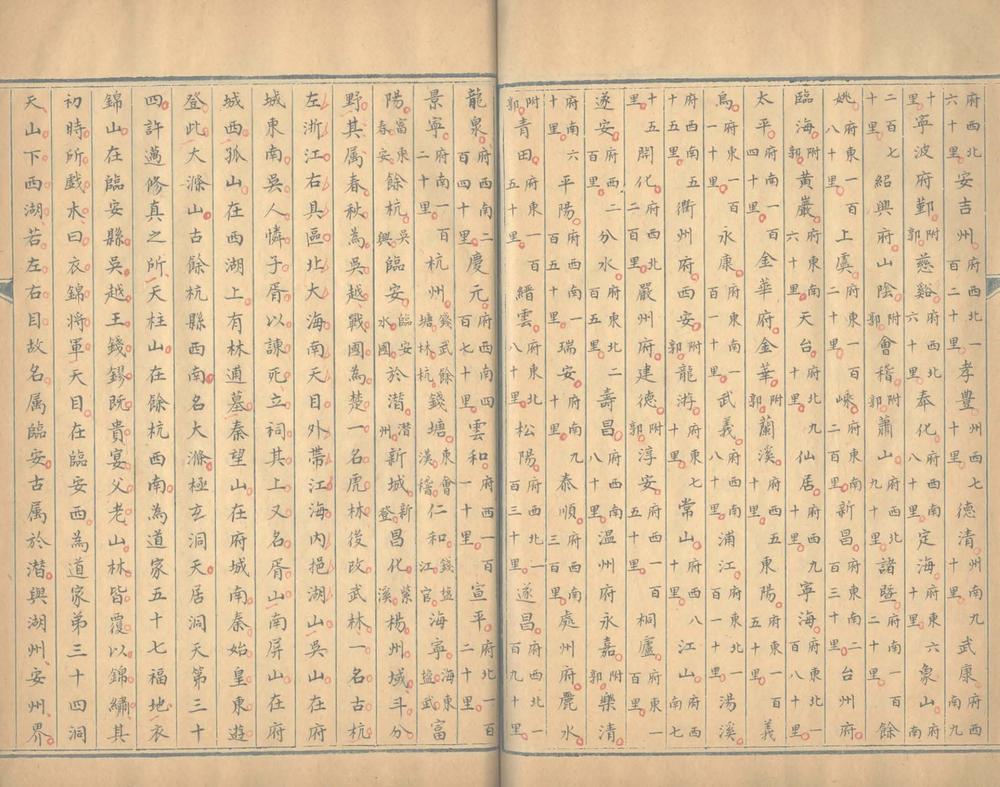 府西北六十里安吉州府西北一百二十里孝豐州西七十里德清州南九十里武康府西南九
十里寧波府鄞附郭慈谿府西北六十里奉化府南八十里定海府東六十里象山府南
二百七十里紹興府山陰附郭會稽附郭蕭山府西北九十里諸暨府南一百二十里餘
姚府東一百八十里上虞府東一百二十里嵊府東南二百里新昌府東南二百三十里台州府
臨海附郭黃巖府東南六十里天台府北九十里仙居府西九十里寧海府北一百八十里
太平府南一百四十里金華府金華附郭蘭溪府西五十里東陽府東一百五十里義
烏府東北一百一十里永康府東南一百一十里武義府南八十里浦江府東北一百一十里湯溪
府西南五十五里衢州府西安附郭龍游府東七十里常山府西八十里江山府南七
十五里開化府西北二百里嚴州府建德附郭淳安府西一百五十里桐廬府東一百里
遂安府西二百里分水府東北一百五里壽昌府西南二八十里温州府永嘉附郭樂清
平陽瑞安府南九十里泰順府西南三百里處州府麗水
附郭青田府東一百五十里縉雲府東北八十里松陽府西北一百三十里遂昌府西北一百九十里
龍泉府西南二百四十里慶元府西南四百七十里雲和府西一百一十里宣平府北一百二十里
景寧府南一百二十里杭州錢武餘塘林杭錢塘東會漢稽仁和錢塩江官海寧海東塩武富
陽富東春安餘杭吳興臨安臨安水國於潛潛州新城新登昌化紫溪楊州域斗分
野其属春秋為吳越戰國為楚一名虎林後改武林一名古杭
左浙江右具區北大海南天目外帶江海內挹湖山吳山在府
城東南吳人憐子胥以諫死立祠其上又名胥山南屏山在府
城西孤山在西湖上有林逋墓秦望山在府城南秦始皇東遊
登此大滌山古餘杭縣西南名大滌極玄洞天居洞天第三十
四許邁修真之所天柱山在餘杭西南為道家五十七福地衣
錦山在臨安縣吳越王錢鏐既貴宴父老山林皆覆以錦繡其
初時所戲木曰衣錦將軍天目在臨安西為道家第三十四洞
天山下西湖若左右目故名属臨安古属於潛與湖州安州界